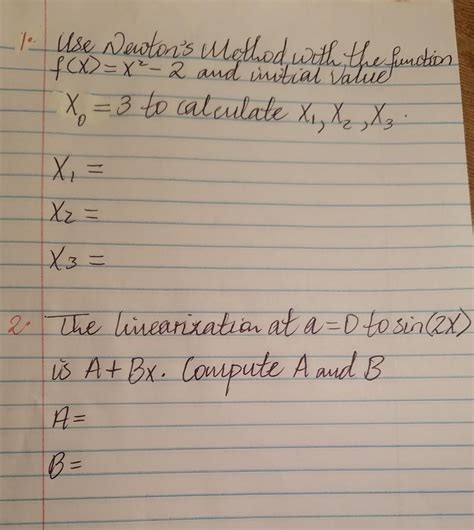 1. Use Newton's Method with the function
f(X) = X² - 2 and initial value
X₀ = 3 to calculate X₁, X₂, X₃.
X₁ =
X₂ =
X₃ =
2. The linearization at a=0 to sin(2X)
is A + Bx. Compute A and B
A =
B =